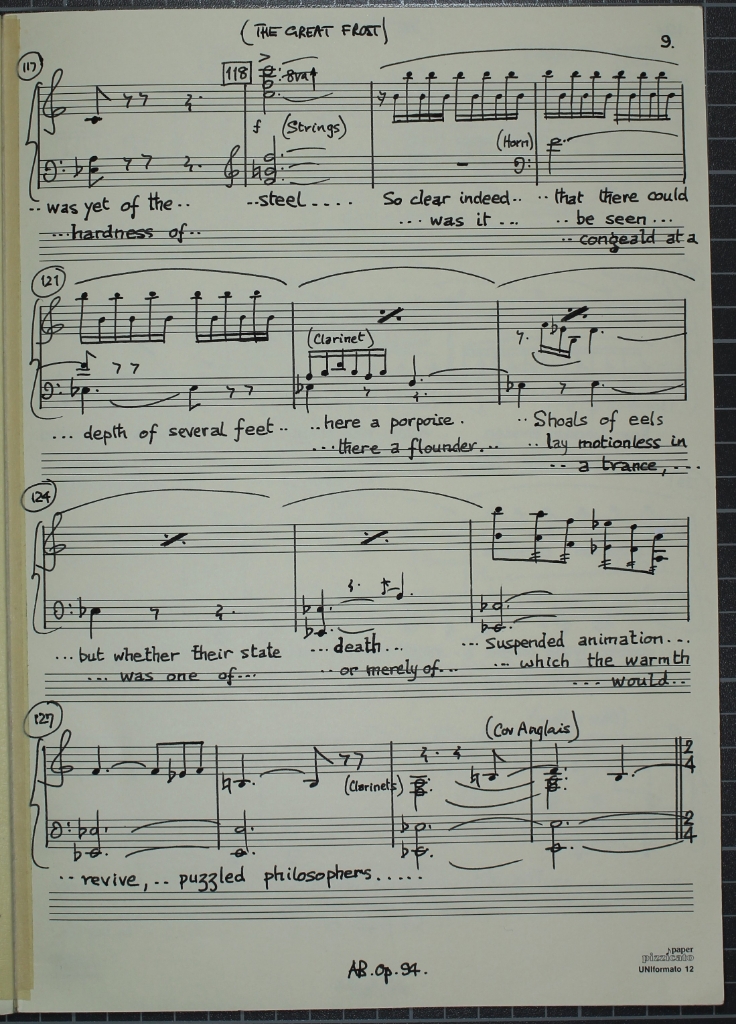 (THE GREAT FROST)
9.
117
118
8va
f (Strings)
(Horn)
.. was yet of the .. .. steel .... So clear indeed .. .. that there could
... hardness of .. ... was it ... .. be seen ...
.. congeald at a
121
(Clarinet)
... depth of several feet .. .. here a porpoise. .. Shoals of eels
... there a flounder... .. lay motionless in
.. a trance, ...
124
... but whether their state ... death ... ... suspended animation...
... was one of ... .. or merely of... ... which the warmth
... would ..
127
(Cor Anglais)
(Clarinets)
2
4
2
4
.. revive, .. puzzled philosophers .....
AB. Op. 94.
paper
pizzicato
UNIformato 12